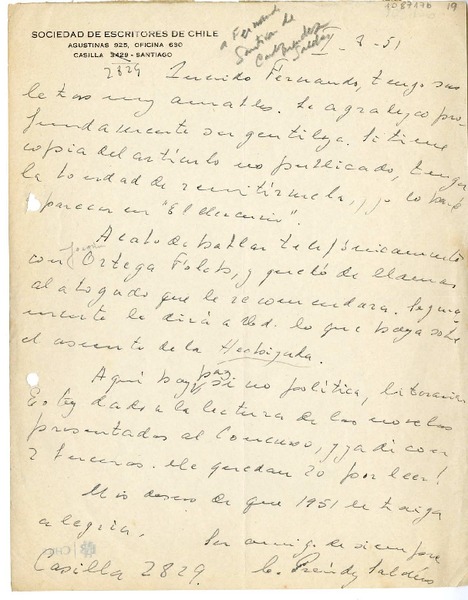 1087170 19
SOCIEDAD DE ESCRITORES DE CHILE
AGUSTINAS 925, OFICINA 630
CASILLA 3429 - SANTIAGO
2829
a Fernando
Santiván de
Saldías
3-51
Querido Fernando, tengo sus
letras muy amables. Le agradezco pro
fundamente su gentileza. Si tiene
copia del artículo no publicado, tenga
la bondad de remitírmela, y yo lo haré
aparecer en "El Mercurio".
Acabo de hablar telefónicamente
con Ortega Folch, y quedó de llamar
al abogado que le recomendara. Segura
mente le dirá a Ud. lo que haya sobre
el asunto de la
Aquí hay paz, si no política, literaria.
Estoy dado a la lectura de las novelas
presentadas al Concurso, y ya di con
2 terceros. Me quedan 20 por leer!
Mis deseos de que 1951 le traiga
alegría.
Su amigo de siempre
Casilla 2829. C. Préndez Saldías